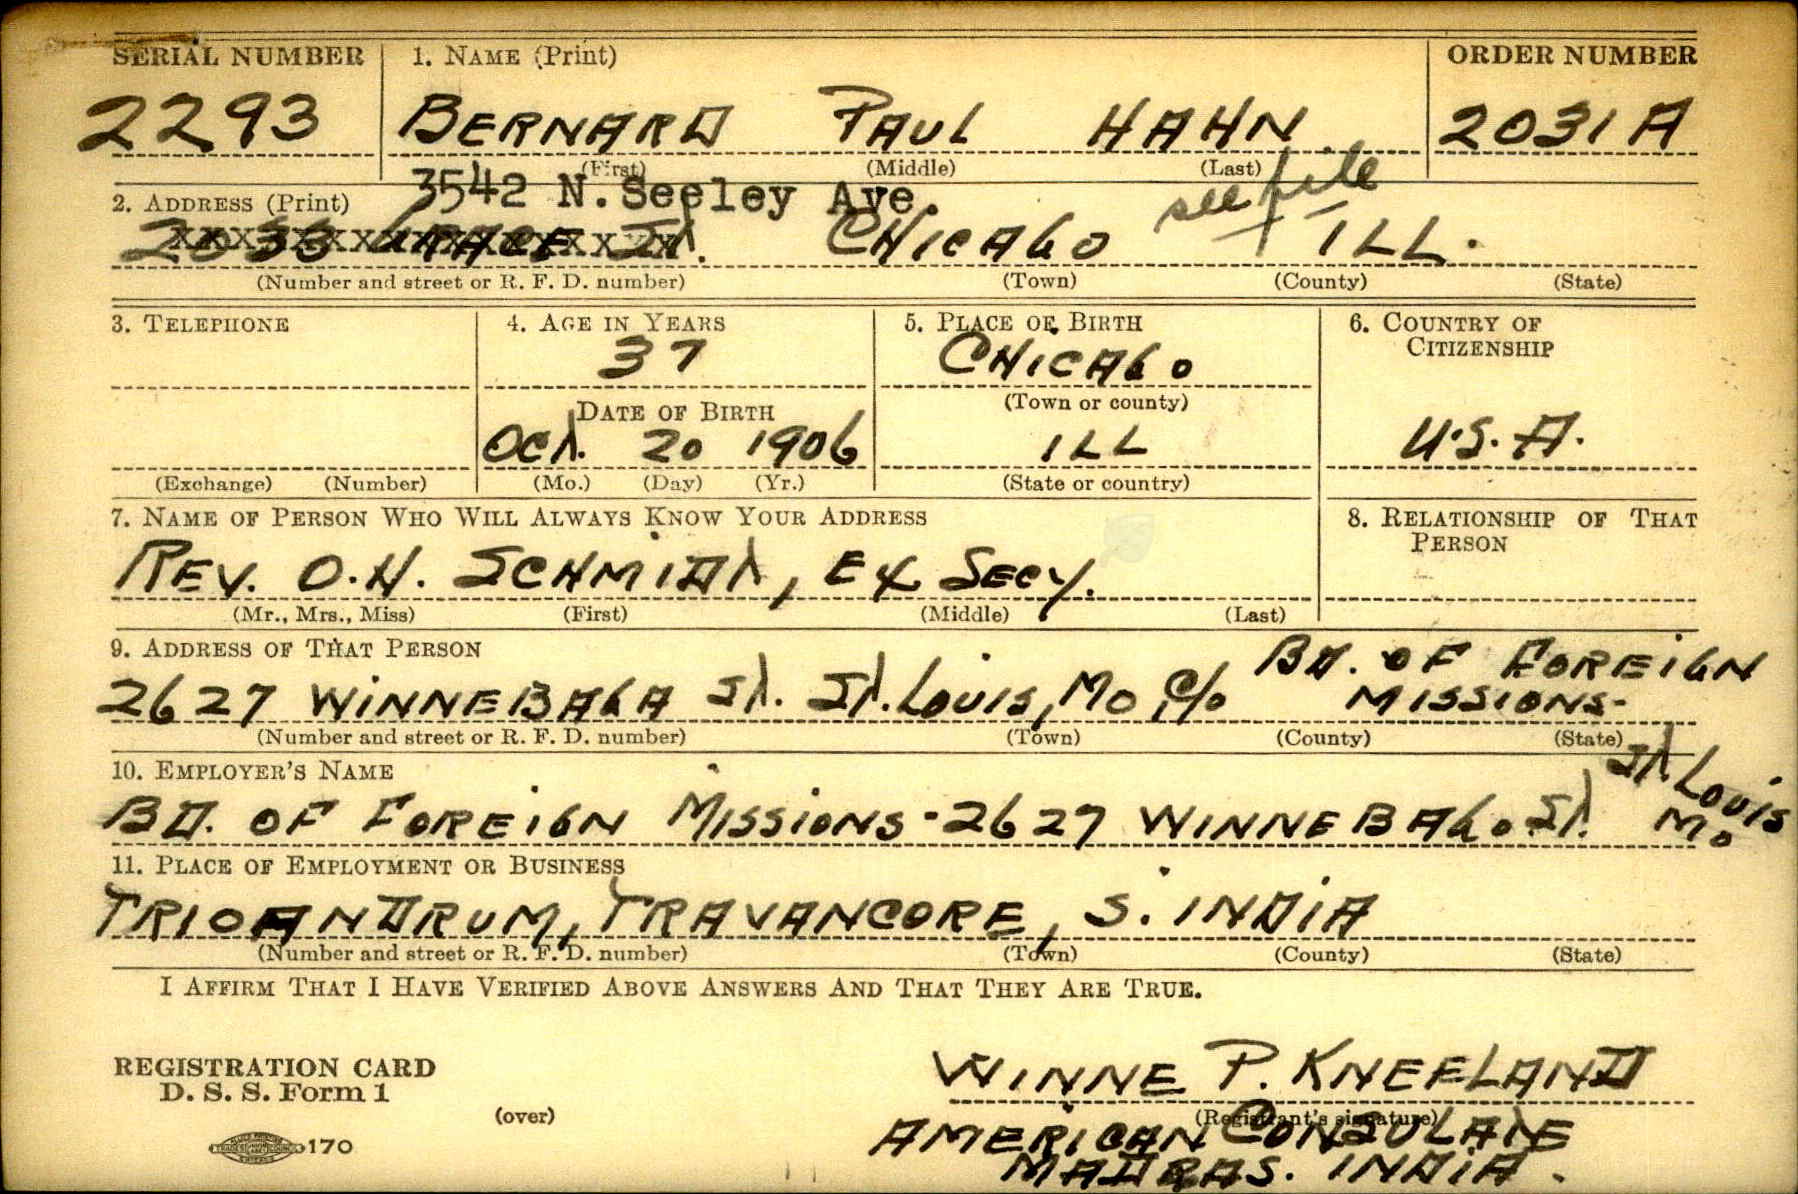 SERIAL NUMBER 1. NAME (Print) ORDER NUMBER
2293 BERNARD PAUL HAHN 2031 A
(First) (Middle) (Last)
3542 N. Seeley Ave. see file
2. ADDRESS (Print)
2033 GRACE St. CHICAGO ILL.
(Number and street or R. F. D. number) (Town) (County) (State)
3. TELEPHONE 4. AGE IN YEARS 5. PLACE OF BIRTH 6. COUNTRY OF CITIZENSHIP
37 CHICAGO
(Town or county)
DATE OF BIRTH
Oct. 20 1906 ILL U.S.A.
(Exchange) (Number) (Mo.) (Day) (Yr.) (State or country)
7. NAME OF PERSON WHO WILL ALWAYS KNOW YOUR ADDRESS 8. RELATIONSHIP OF THAT PERSON
REV. O.H. SCHMIDT, EX SECY.
(Mr., Mrs., Miss) (First) (Middle) (Last)
9. ADDRESS OF THAT PERSON
2627 WINNEBAGA St. St. LOUIS, MO c/o BD. OF FOREIGN MISSIONS-
(Number and street or R. F. D. number) (Town) (County) (State)
10. EMPLOYER'S NAME
BD. OF FOREIGN MISSIONS - 2627 WINNEBAGO St. St LOUIS MO
11. PLACE OF EMPLOYMENT OR BUSINESS
TRIOANDRUM, TRAVANCORE, S. INDIA
(Number and street or R. F. D. number) (Town) (County) (State)
I AFFIRM THAT I HAVE VERIFIED ABOVE ANSWERS AND THAT THEY ARE TRUE.
REGISTRATION CARD
D. S. S. Form 1
(over)
170
WINNE P. KNEELAND
(Registrant's signature)
AMERICAN CONSULATE
MADRAS. INDIA.